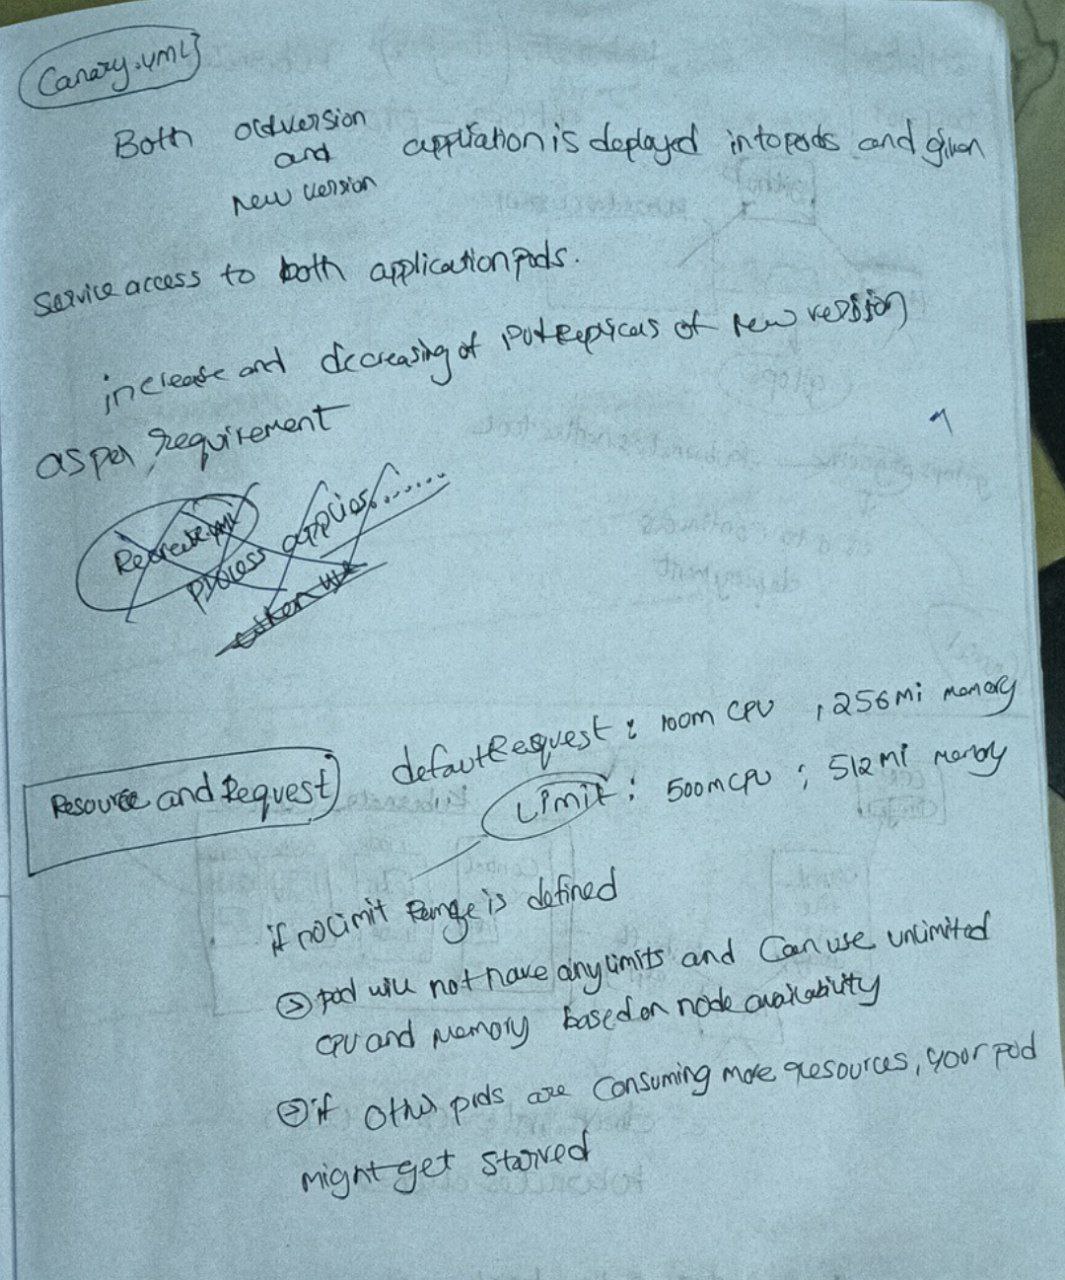 Canary.yml
Both old version and new version appliation is deployed into pods and given
Service access to both application pods.
increase and decreasing of pod replicas of new version
as per requirement
Recreate.yml
process applies.......
when we
Resource and Request
default Request : 100m CPU , 256Mi memory
Limit : 500m CPU ; 512 Mi memory
if no limit Range is defined
→ pod will not have any limits and Can use unlimited
CPU and Memory based on node availability
→ if other pods are Consuming more resources, your pod
might get starved